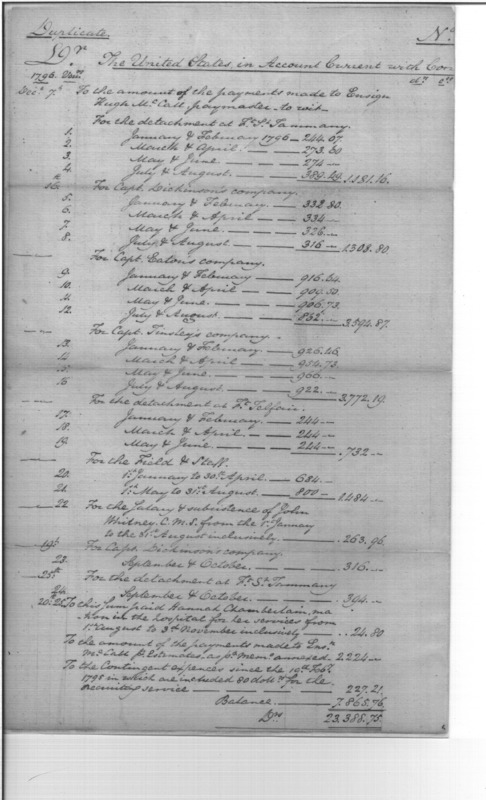 Duplicate. No
Dr. The United States, in Account Current with Cor
1796
Decr. 7th To the amount of the payments made to Ensign
Hugh McCall, paymaster to wit
For the detachment at Ft. St. Tammany.
1. January & February 1796 - 244.07.
2. March & April. - 273.50
3. May & June. - 274 -
4. July & August. - 389.59 1,181.16.
16. For Capt. Dickinson's company.
5. January & February. - 332.80.
6. March & April - 334 -
7. May & June. - 326 -
8. July & August - 316 - 1308.80.
For Capt. Eaton's company.
9. January & February - 916.64.
10. March & April - 909.50.
11. May & June. - 906.73.
12. July & August. - 862. - 3594.87.
For Capt. Tinsley's company.
13. January & February. - 926.46
14. March & April - 954.73
15. May & June. - 966 -
16. July & August. - 922. - 3,772.19.
For the detachment at Ft. Telfair.
17. January & February. - 244 -
18. March & April. - 244 -
19. May & June. - 244 - 732 -
For the Field & Staff.
20. 1st January to 30th April. - 684 -
21. 1st May to 31st August. - 800 - 1484 -
22 For the Salary & subsistence of John
Whitney. C.M.S. from the 1st January
to the 31st August inclusively. - 263.96.
19th For Capt. Dickinson's company.
23. September & October. - 316 -
25th For the detachment at Ft. St. Tammany
24. September & October. - 394 -
25 To this sum paid Hannah Chamberlain, ma
tron in the hospital for her services from
1st August to 3d November inclusively - 24.80
To the amount of the payments made to Ensn.
McCall pr Estimates, as pr Memm. annexed. 2224 -
To the Contingent expences since the 19th Feby.
1795 in which are included 80 dolls. for the
recruiting service - 227.21.
Balance. - 7,865.76.
Drs. 23,388.75.